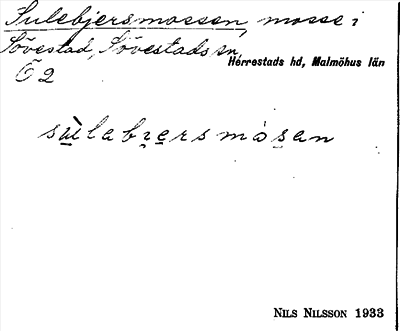 Sulebjersmossen, mosse i
Sövestad, Sövestads sn,
Herrestads hd, Malmöhus län
Ö 2
sùlabrersmòsen
NILS NILSSON 1933